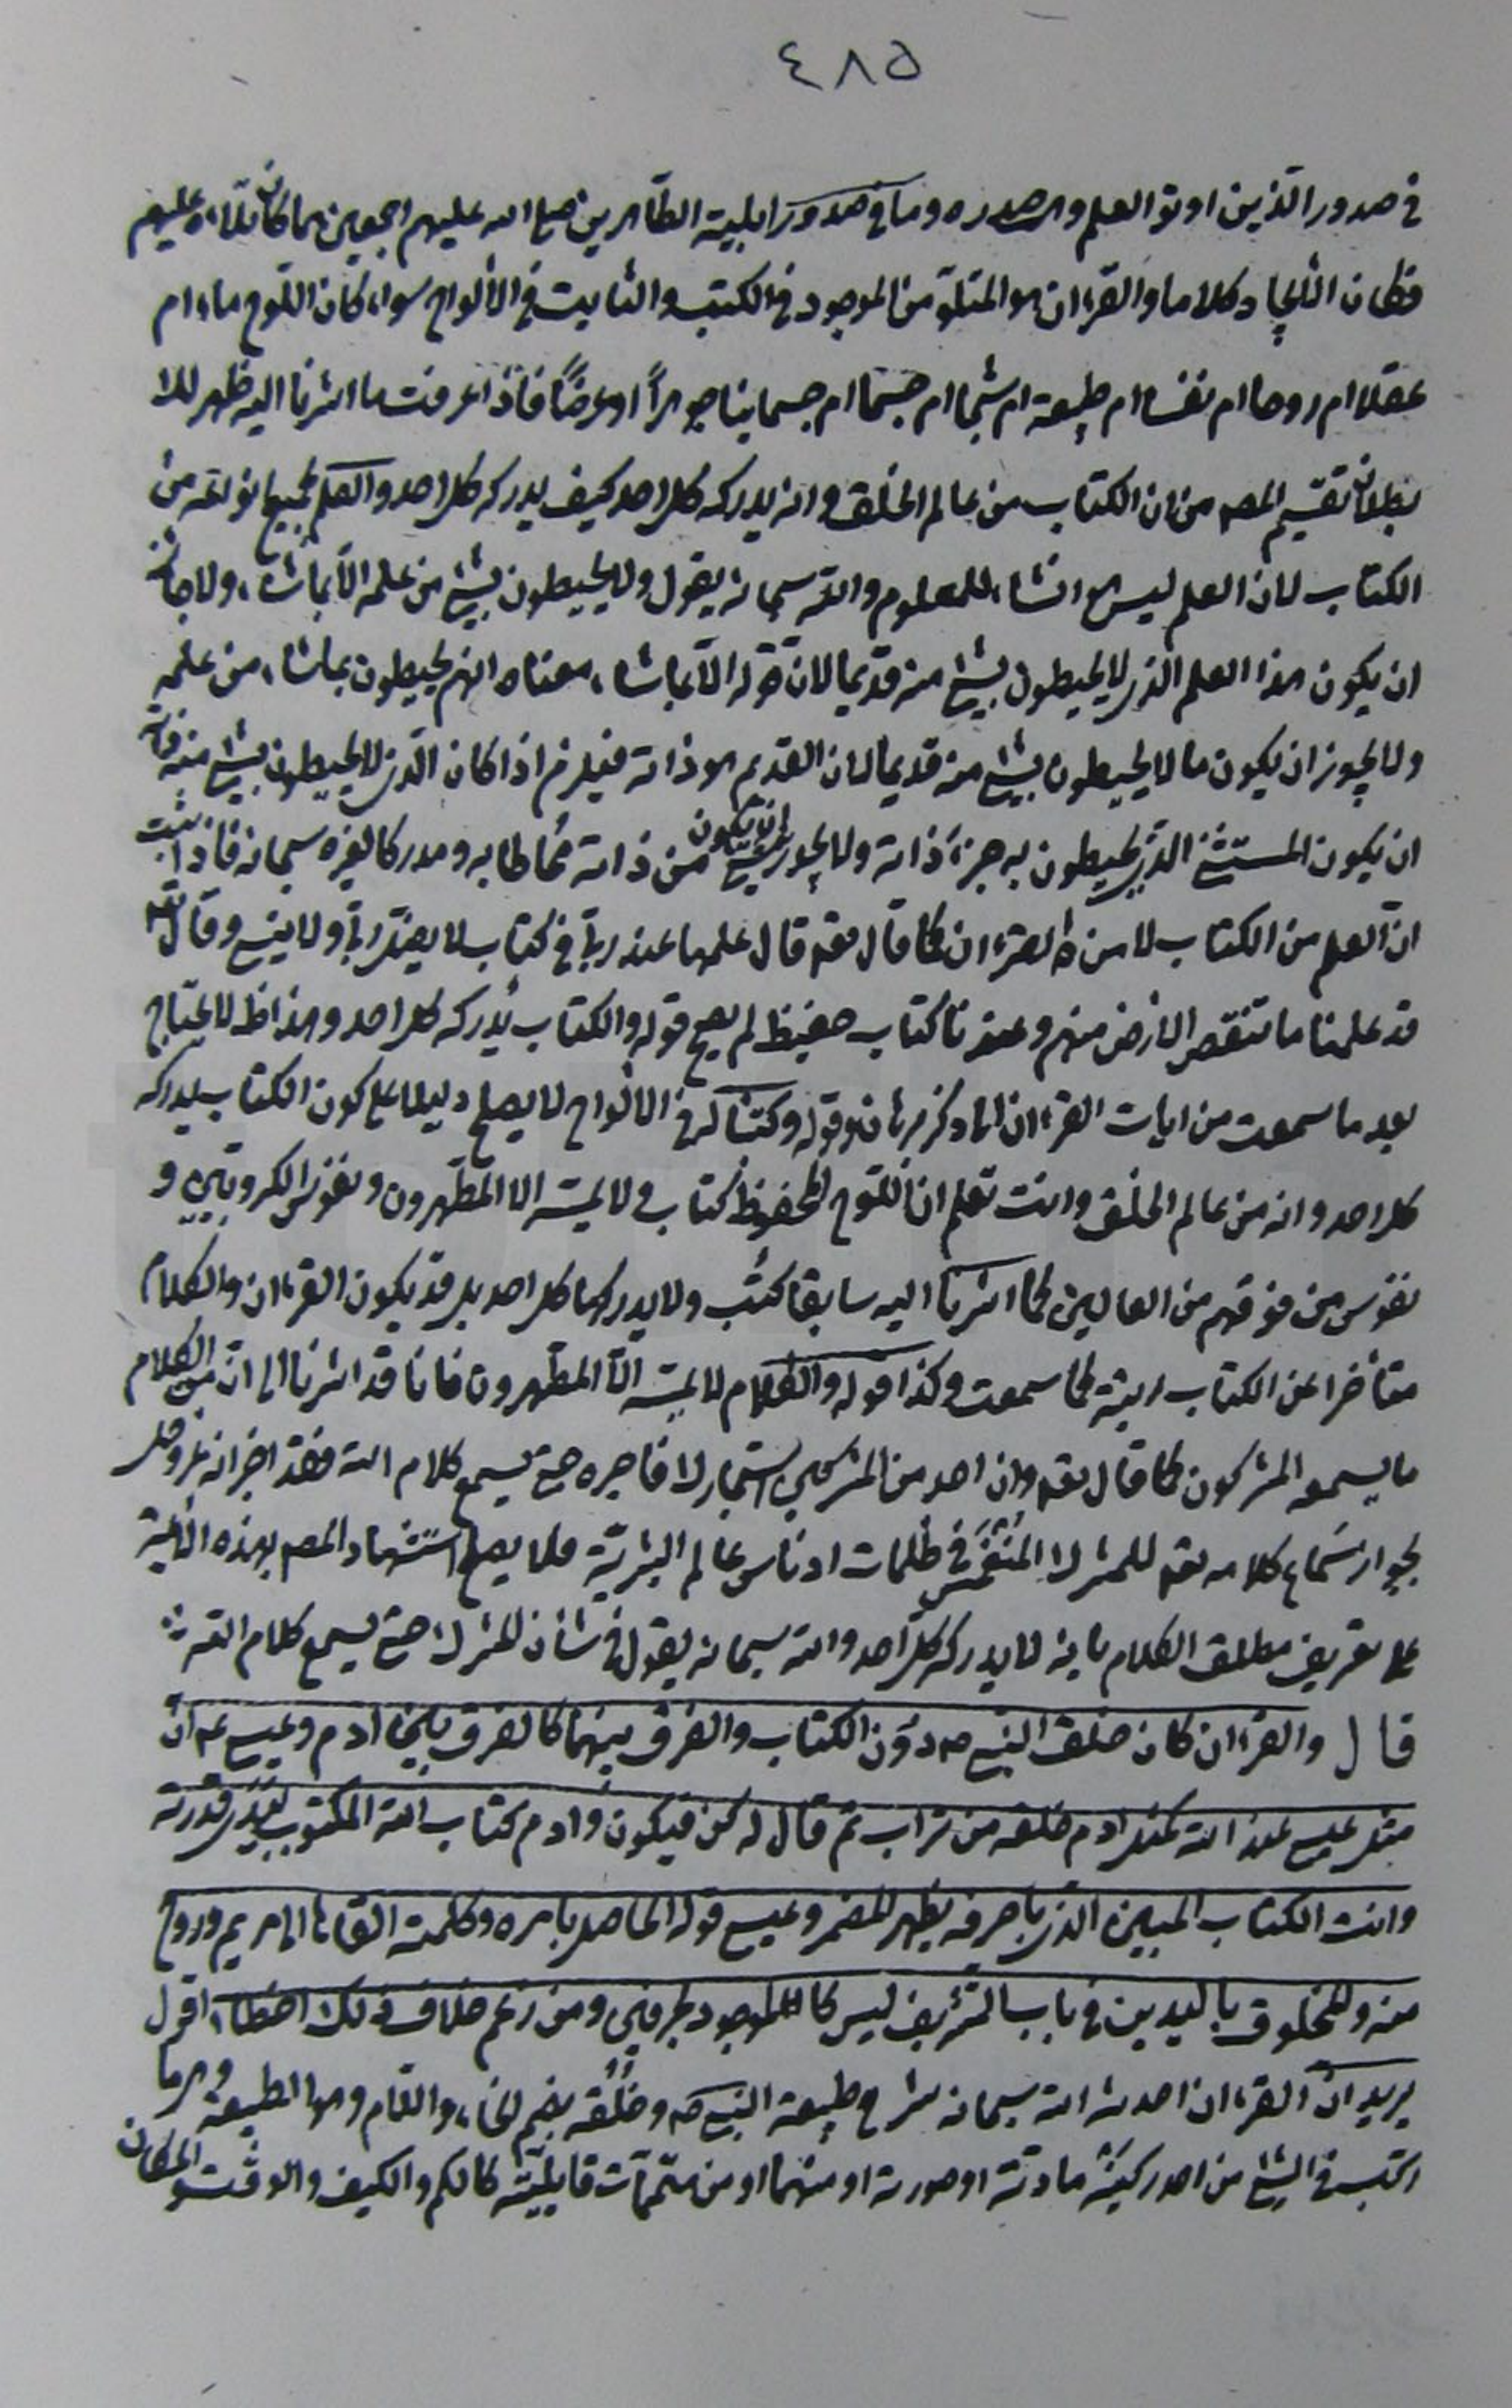 ٤٨٥
في صدور الذين اوتوا العلم وما في صدور اهل بيته الطاهرين صلى الله عليهم اجمعين مما كان تلاه عليهم
فكان الايجاد كلاما والقرءان هو المتلو من الموجود في الكتب والثابت في الألواح سواء كان اللوح ماء ام
عقلا ام روحا ام نفسا ام طبيعة ام شبحا ام جسما ام جسمانيا جوهراً او عرضاً فاذا عرفت ما اشرنا اليه ظهر لك
بطلان تقسيم المصـ من ان الكتاب من عالم الخلق وانه يدركه كل احد كيف يدركه كل احد والعلم بجميع انواعه من
الكتاب لان العلم ليس انشاء للمعلوم والله سبحانه يقول ولا يحيطون بشئ من علمه الا بما شاء ولا جائز
ان يكون هذا العلم الذي لا يحيطون بشئ منه قديما لان قوله الا بما شاء معناه انهم يحيطون بما شاء من علمه
ولا يجوز ان يكون ما لا يحيطون بشئ منه قديما لان القديم هو ذاته فيلزم اذا كان الذي لا يحيطون بشئ منه ذاته
ان يكون المستثنى الذي يحيطون به جزء ذاته ولا يجوز ان يكون شئ من ذاته محاطا به ومدركا لغيره سبحانه فاذا ثبت
ان العلم من الكتاب لا من القرءان كما قال تعه قال علمها عند ربي في كتاب لا يضل ربي ولا ينسى وقال تعه
قد علمنا ما تنقص الارض منهم وعندنا كتاب حفيظ لم يصح قوله والكتاب يدركه كل احد وهذا ظـ لا يحتاج
بعد ما سمعت من ايات القرءان الى ذكر برهان وقوله وكتبنا له في الالواح لا يصلح دليلا على كون الكتاب يدركه
كل احد وانه من عالم الخلق وانت تعلم ان اللوح المحفوظ كتاب ولا يمسه الا المطهرون ونفوس الكروبيين و
نفوس من فوقهم من العالين كما اشرنا اليه سابقا كتب ولا يدركها كل احد بل قد يكون القرءان والكلام
متأخرا عن الكتاب رتبة كما سمعت وكذا قوله والكلام لا يمسه الا المطهرون فانا قد اشرنا الى ان من الكلام
ما يسمعه المشركون كما قال تعه وان احد من المشركين استجارك فاجره حتى يسمع كلام الله فقد اخبر انه عز وجل
بجواز سماع كلامه تعه للمشرك المنغمس في ظلمات ادناس عالم البشرية فلا يصح استشهاد المصـ بهذه الاية
على تعريف مطلق الكلام بانه لا يدركه كل احد والله سبحانه يقول في شان المشرك حتى يسمع كلام الله
قال والقرءان كان خلق النبي صـ دون الكتاب والفرق بينهما كالفرق بين ادم وعيسى عـ ان
مثل عيسى عند الله كمثل ادم خلقه من تراب ثم قال له كن فيكون وادم كتاب الله المكتوب بيدي قدرته
وانت الكتاب المبين الذي باحرفه يظهر المضمر وعيسى قوله الحاصل بامره وكلمته القاها الى مريم وروح
منه والمخلوق باليدين في باب التشريف ليس كالموجود بحرفين ومن زعم خلاف ذلك اخطأ اقول
يريد ان القرءان احدثه الله سبحانه شرح طبيعة النبي صـ وخلقه بضم الخاء واللام وهما الطبيعة وهو ما
ركب في الشئ من احد ركنيه مادته او صورته او منهما او من متممات قابليته كالكم والكيف والوقت والمكان